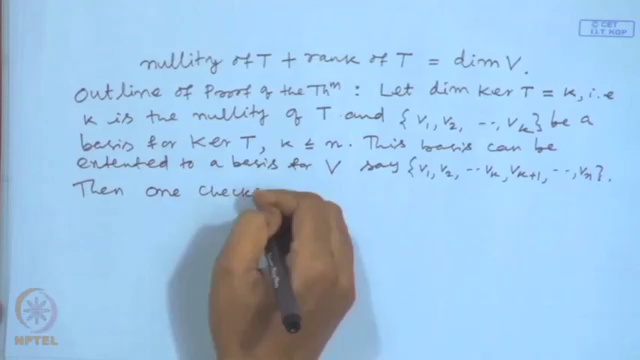 © CET
I.I.T. KGP
nullity of T + rank of T = dim V.
Outline of Proof of the Thm : Let dim Ker T = k, i.e
k is the nullity of T and {v1, v2, ..., vk} be a
basis for Ker T, k ≤ n. This basis can be
extented to a basis for V say {v1, v2, ... vk, vk+1, ..., vn}.
Then one check
NPTEL